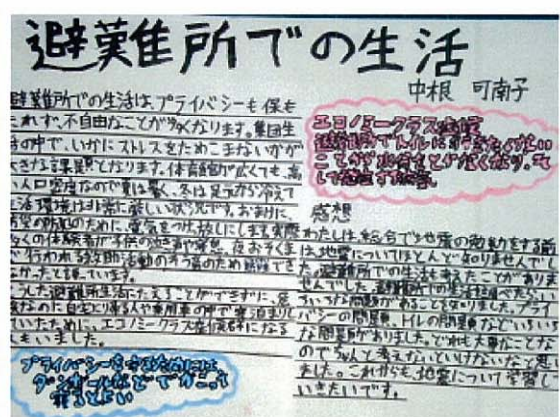 避難所での生活
中根 可南子
避難所での生活は、プライバシーも保も
これず、不自由なことが多くなります。集団生
活の中で、いかにストレスをためこまないかが
大きな課題となります。体育館が広くても、高
い人口密度なので夏は暑く、冬は足元が冷えて
生活環境は非常に厳しい状況です。おまけに、
のために、電気をつけ放しにします実際
多くの体験者が子供の泣き声や発熱、夜おそくま
で行われる救助活動のそう音のため睡眠でき
なかったと言っています。
こうした避難所生活にたえることができずに、危
険なのに自宅に戻る人や乗用車の中で寝泊まりし
ていたために、エコノミークラス症候群になる
人もいました。
プライバシーを守るためには
ダンボールなどで
エコノミークラス症候
避難所でトイレに行きたくない
ことから水分をとらなくなり、
感想
わたしは、総合で地震の勉動をする前
は、地震についてほとんど知りませんでし
た。避難所での生活も考えたことがありま
せんでした。避難所での生活を調べたら、い
ろいろな問題があることを知りました。プライ
バシーの問題、トイレの問題などいろいろ
な問題がありました。どれも大事なことな
のでちゃんと考えないといけないなと思い
ました。これからも、地震について学習して
いきたいです。